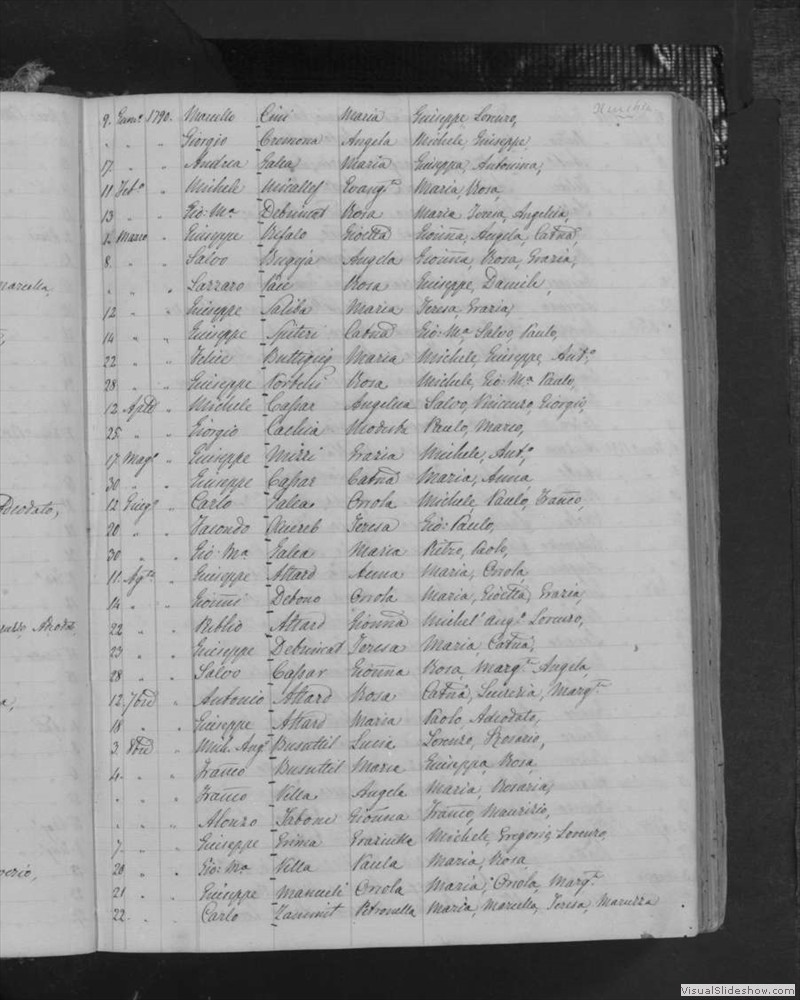 9. Genn.º 1790. Marcello Cini Maria Giuseppe Lonzo,
" " " Giorgio Cremona Angela Michele, Giuseppe
17. " " Andrea Galea Maria Giuseppa, Antonina,
11 Feb.º " Michele Micallef Evang.ta Maria, Rosa,
13 " " Gio: M.ª Debuincat Rosa Maria, Teresa, Angelica,
Marzo " Giuseppe Bifalo Gioñña, Angela, Catña,
8. " " Salvo Bugeja Angela Gioñña, Rosa, Grazia,
" " " Lazzaro Pace Rosa Giuseppe, Daniele,
12 " " Giuseppe Saliba Maria Teresa, Grazia,
14 " " Giuseppe Spiteri Catña Gio: M.ª Salvo, Paulo,
22 " " Felice Buttigieg Maria Michele, Giuseppe, Ant.º
28 " " Giuseppe Rosa Michele, Gio: M.ª Paulo,
12. Aple " Michele Caspar Angelica Salvo, Vincenzo, Giorgio,
25. " " Giorgio Cachia Modesta Paulo, Marco,
17 Mag.º " Giuseppe Mizzi Grazia Michele, Ant.º
30 " " Giuseppe Caspar Catña Maria, Anna,
12 Giug.º " Carlo Galea Orsola Michele, Paulo, Franco,
20 " " Facondo Xuereb Teresa Gio: Paulo,
30 " " Gio: M.ª Galea Maria Pietro, Paolo,
11. Ag.to " Giuseppe Attard Anna Maria, Orsola,
14 " " Gioñni Debono Orsola Maria, Gioetta, Grazia,
22 " " Publio Attard Gioñña Michel' Ang.º Lorenzo,
23 " " Giuseppe Debuincat Teresa Maria, Catña,
28 " " Salvo Caspar Gioñña Rosa, Marg.ta Angela,
12. 7bre " Antonio Attard Rosa Catña, Lucrezia, Marg.ta
18 " " Giuseppe Attard Maria Paolo, Adeodato,
3. 8bre " Mich. Ang.º Busuttil Lucia Lorenzo, Rosario,
4. " " Franco Busuttil Maria Giuseppa, Rosa,
" " " Franco Vella Angela Maria, Rosaria,
" " " Alonzo Tabone Gioñña Franco, Maurizio,
7 " " Giuseppe Grima Graziulla Michele, Gregorio, Lorenzo,
20 " " Gio: M.ª Vella Paula Maria, Rosa
21 " " Giuseppe Manueli Orsola Maria, Orsola, Marg.ta
22. " " Carlo Zammit Petronella Maria, Marcella, Teresa, Maruzza
Marcella,
Adeodato,
Adeodato,
VisualSlideshow.com